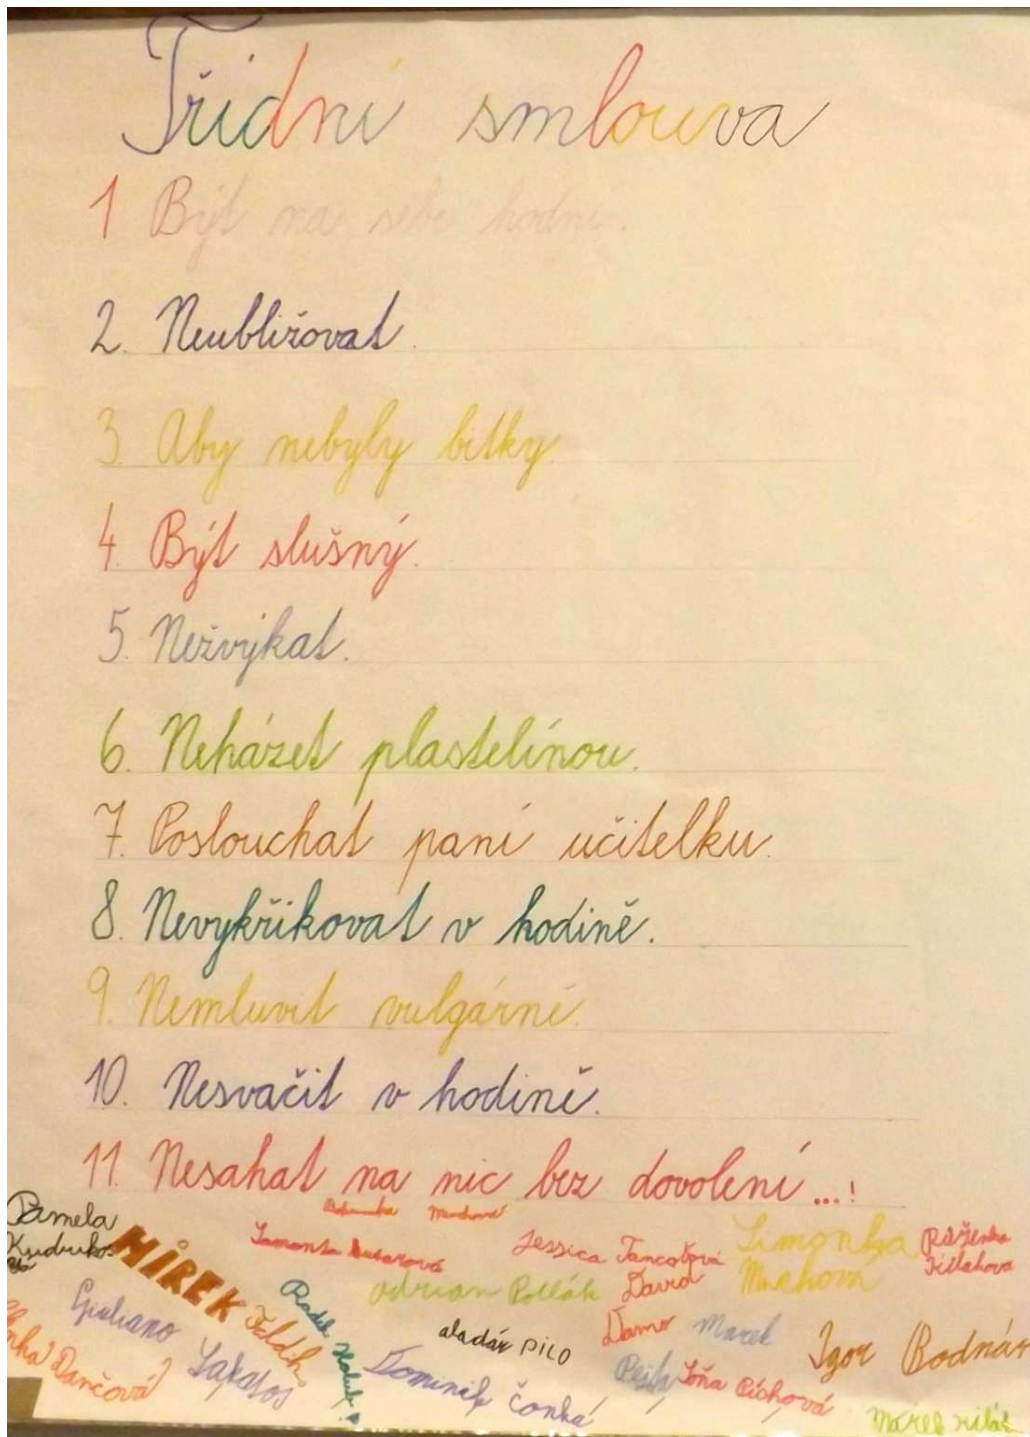 Třídní smlouva
1 Být na sebe hodní.
2. Neubližovat.
3. Aby nebyly bitky
4. Být slušný.
5. Nežvýkat.
6. Neházet plastelínou.
7. Poslouchat paní učitelku.
8. Nevykřikovat v hodině.
9. Nemluvit vulgárně.
10. Nesvačit v hodině.
11. Nesahat na nic bez dovolení...!
Pamela
MÍREK
Jessica Tancošová
Simonka
Růženka
Adrian Pollák
David
Giuliano
Radek
aladár PILO
Damo
Marek
Igor Bodnár
Dančová
Lakatos
Dominik Čonka
Pejla
Soňa Cichová
Marek